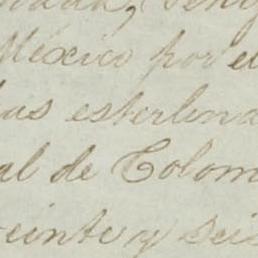 México por el
as esterlina
al de Colom
veinte y seis